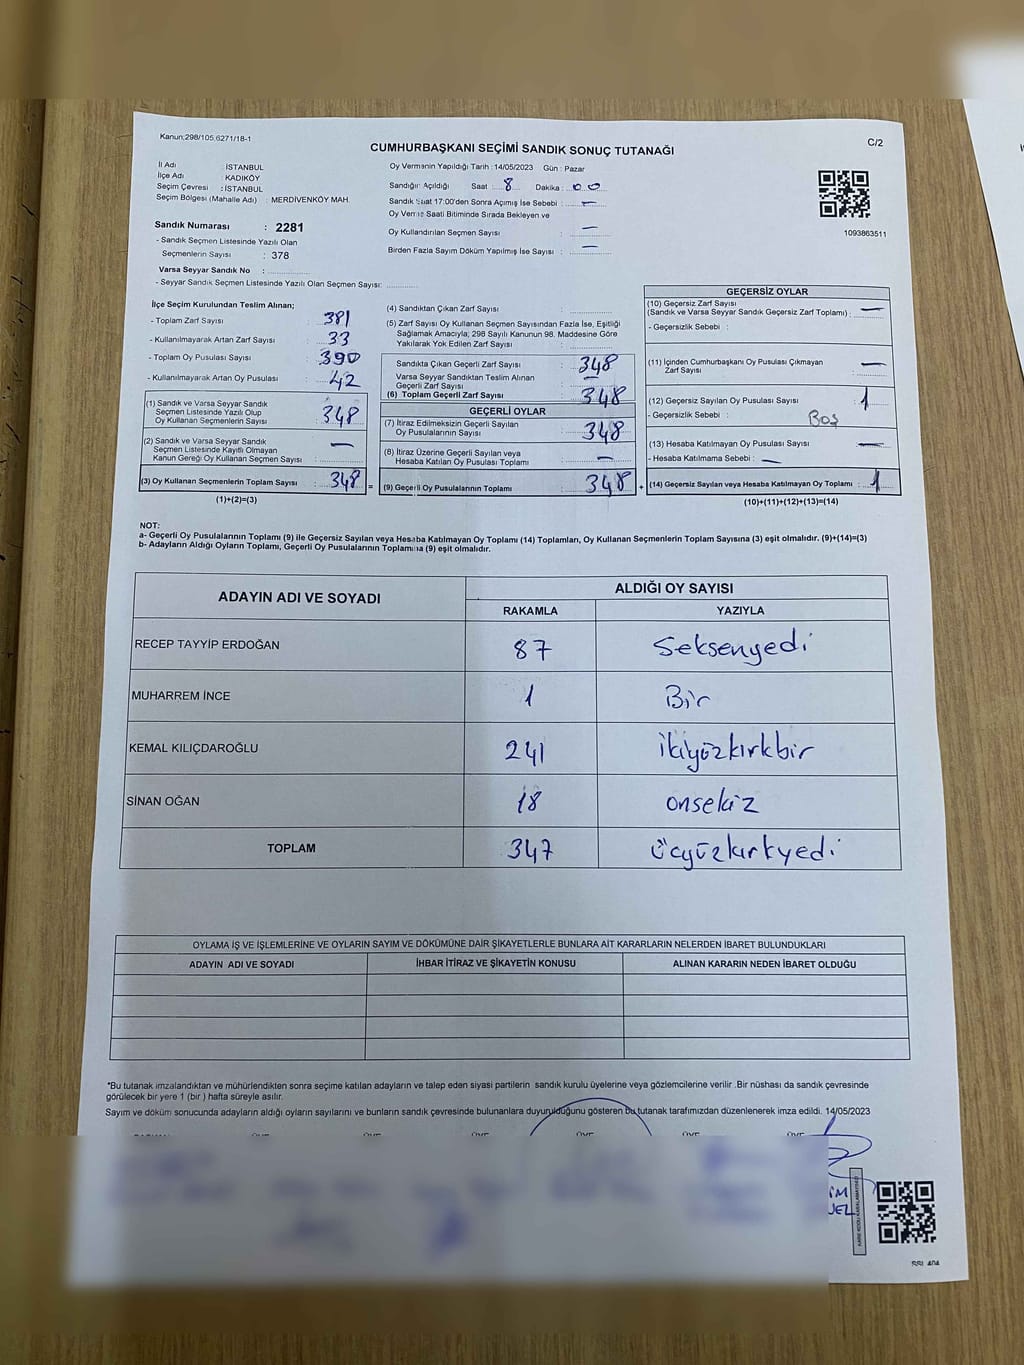 Kanun:298/105,6271/18-1
C/2
CUMHURBAŞKANI SEÇİMİ SANDIK SONUÇ TUTANAĞI
İl Adı : İSTANBUL
İlçe Adı : KADIKÖY
Seçim Çevresi : İSTANBUL
Seçim Bölgesi (Mahalle Adı) : MERDİVENKÖY MAH.
Sandık Numarası : 2281
- Sandık Seçmen Listesinde Yazılı Olan
Seçmenlerin Sayısı : 378
Varsa Seyyar Sandık No :
- Seyyar Sandık Seçmen Listesinde Yazılı Olan Seçmen Sayısı:
Oy Vermenin Yapıldığı Tarih : 14/05/2023 Gün : Pazar
Sandığın Açıldığı Saat : 8 Dakika : 00
Sandık Saat 17:00'den Sonra Açımış İse Sebebi : —
Oy Verme Saati Bitiminde Sırada Bekleyen ve
Oy Kullandırılan Seçmen Sayısı : —
Birden Fazla Sayım Döküm Yapılmış İse Sayısı : —
1093863511
İlçe Seçim Kurulundan Teslim Alınan;
- Toplam Zarf Sayısı : 381
- Kullanılmayarak Artan Zarf Sayısı : 33
- Toplam Oy Pusulası Sayısı : 390
- Kullanılmayarak Artan Oy Pusulası : 42
(1) Sandık ve Varsa Seyyar Sandık
Seçmen Listesinde Yazılı Olup
Oy Kullanan Seçmenlerin Sayısı : 348
(2) Sandık ve Varsa Seyyar Sandık
Seçmen Listesinde Kayıtlı Olmayan
Kanun Gereği Oy Kullanan Seçmen Sayısı : —
(3) Oy Kullanan Seçmenlerin Toplam Sayısı : 348 =
(1)+(2)=(3)
(4) Sandıktan Çıkan Zarf Sayısı :
(5) Zarf Sayısı Oy Kullanan Seçmen Sayısından Fazla İse, Eşitliği
Sağlamak Amacıyla; 298 Sayılı Kanunun 98. Maddesine Göre
Yakılarak Yok Edilen Zarf Sayısı :
Sandıkta Çıkan Geçerli Zarf Sayısı : 348
Varsa Seyyar Sandıktan Teslim Alınan
Geçerli Zarf Sayısı : —
(6) Toplam Geçerli Zarf Sayısı : 348
GEÇERLİ OYLAR
(7) İtiraz Edilmeksizin Geçerli Sayılan
Oy Pusulalarının Sayısı : 348
(8) İtiraz Üzerine Geçerli Sayılan veya
Hesaba Katılan Oy Pusulası Toplamı : —
(9) Geçerli Oy Pusulalarının Toplamı : 348 +
GEÇERSİZ OYLAR
(10) Geçersiz Zarf Sayısı
(Sandık ve Varsa Seyyar Sandık Geçersiz Zarf Toplamı) : —
- Geçersizlik Sebebi :
(11) İçinden Cumhurbaşkanı Oy Pusulası Çıkmayan
Zarf Sayısı : —
(12) Geçersiz Sayılan Oy Pusulası Sayısı : 1
- Geçersizlik Sebebi : Boş
(13) Hesaba Katılmayan Oy Pusulası Sayısı : —
- Hesaba Katılmama Sebebi : —
(14) Geçersiz Sayılan veya Hesaba Katılmayan Oy Toplamı : 1
(10)+(11)+(12)+(13)=(14)
NOT:
a- Geçerli Oy Pusulalarının Toplamı (9) ile Geçersiz Sayılan veya Hesaba Katılmayan Oy Toplamı (14) Toplamları, Oy Kullanan Seçmenlerin Toplam Sayısına (3) eşit olmalıdır. (9)+(14)=(3)
b- Adayların Aldığı Oyların Toplamı, Geçerli Oy Pusulalarının Toplamına (9) eşit olmalıdır.
ADAYIN ADI VE SOYADI
ALDIĞI OY SAYISI
RAKAMLA YAZIYLA
RECEP TAYYİP ERDOĞAN 87 Seksenyedi
MUHARREM İNCE 1 Bir
KEMAL KILIÇDAROĞLU 241 ikiyüzkırkbir
SİNAN OĞAN 18 onsekiz
TOPLAM 347 üçyüzkırkyedi
OYLAMA İŞ VE İŞLEMLERİNE VE OYLARIN SAYIM VE DÖKÜMÜNE DAİR ŞİKAYETLERLE BUNLARA AİT KARARLARIN NELERDEN İBARET BULUNDUKLARI
ADAYIN ADI VE SOYADI İHBAR İTİRAZ VE ŞİKAYETİN KONUSU ALINAN KARARIN NEDEN İBARET OLDUĞU
*Bu tutanak imzalandıktan ve mühürlendikten sonra seçime katılan adayların ve talep eden siyasi partilerin sandık kurulu üyelerine veya gözlemcilerine verilir .Bir nüshası da sandık çevresinde
görülecek bir yere 1 (bir ) hafta süreyle asılır.
Sayım ve döküm sonucunda adayların aldığı oyların sayılarını ve bunların sandık çevresinde bulunanlara duyurulduğunu gösteren bu tutanak tarafımızdan düzenlenerek imza edildi. 14/05/2023